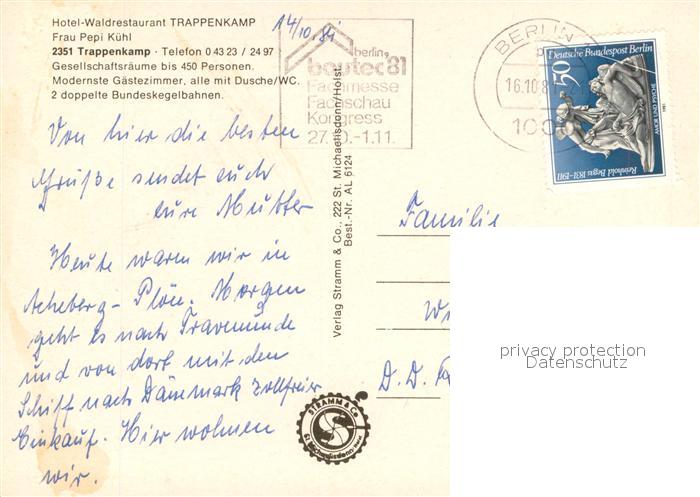 Hotel-Waldrestaurant TRAPPENKAMP
Frau Pepi Kühl
2351 Trappenkamp · Telefon 0 43 23 / 24 97
Gesellschaftsräume bis 450 Personen.
Modernste Gästezimmer, alle mit Dusche/WC.
2 doppelte Bundeskegelbahnen.
14/10.81
berlin,
bautec'81
Fachmesse
Fachschau
Kongress
27.10.-1.11.
BERLIN
16.10.8
1000
Deutsche Bundespost Berlin
50
AMOR UND PSYCHE
1981
Reinhold Begas 1831-1911
Von hier die besten
Grüße sendet euch
eure Mutter
Heute waren wir in
Ascheberg - Plön. Morgen
geht es nach Travemünde
und von dort mit den
Schiff nach Dänmark zollfreier
Einkauf. Hier wohnen
wir.
Verlag Stramm & Co., 222 St. Michaelisdonn/Holst.
Best.-Nr. AL 6124
STRAMM & Co.
St. Michaelisdonn Holst.
Familie
D. D.
privacy protection
Datenschutz